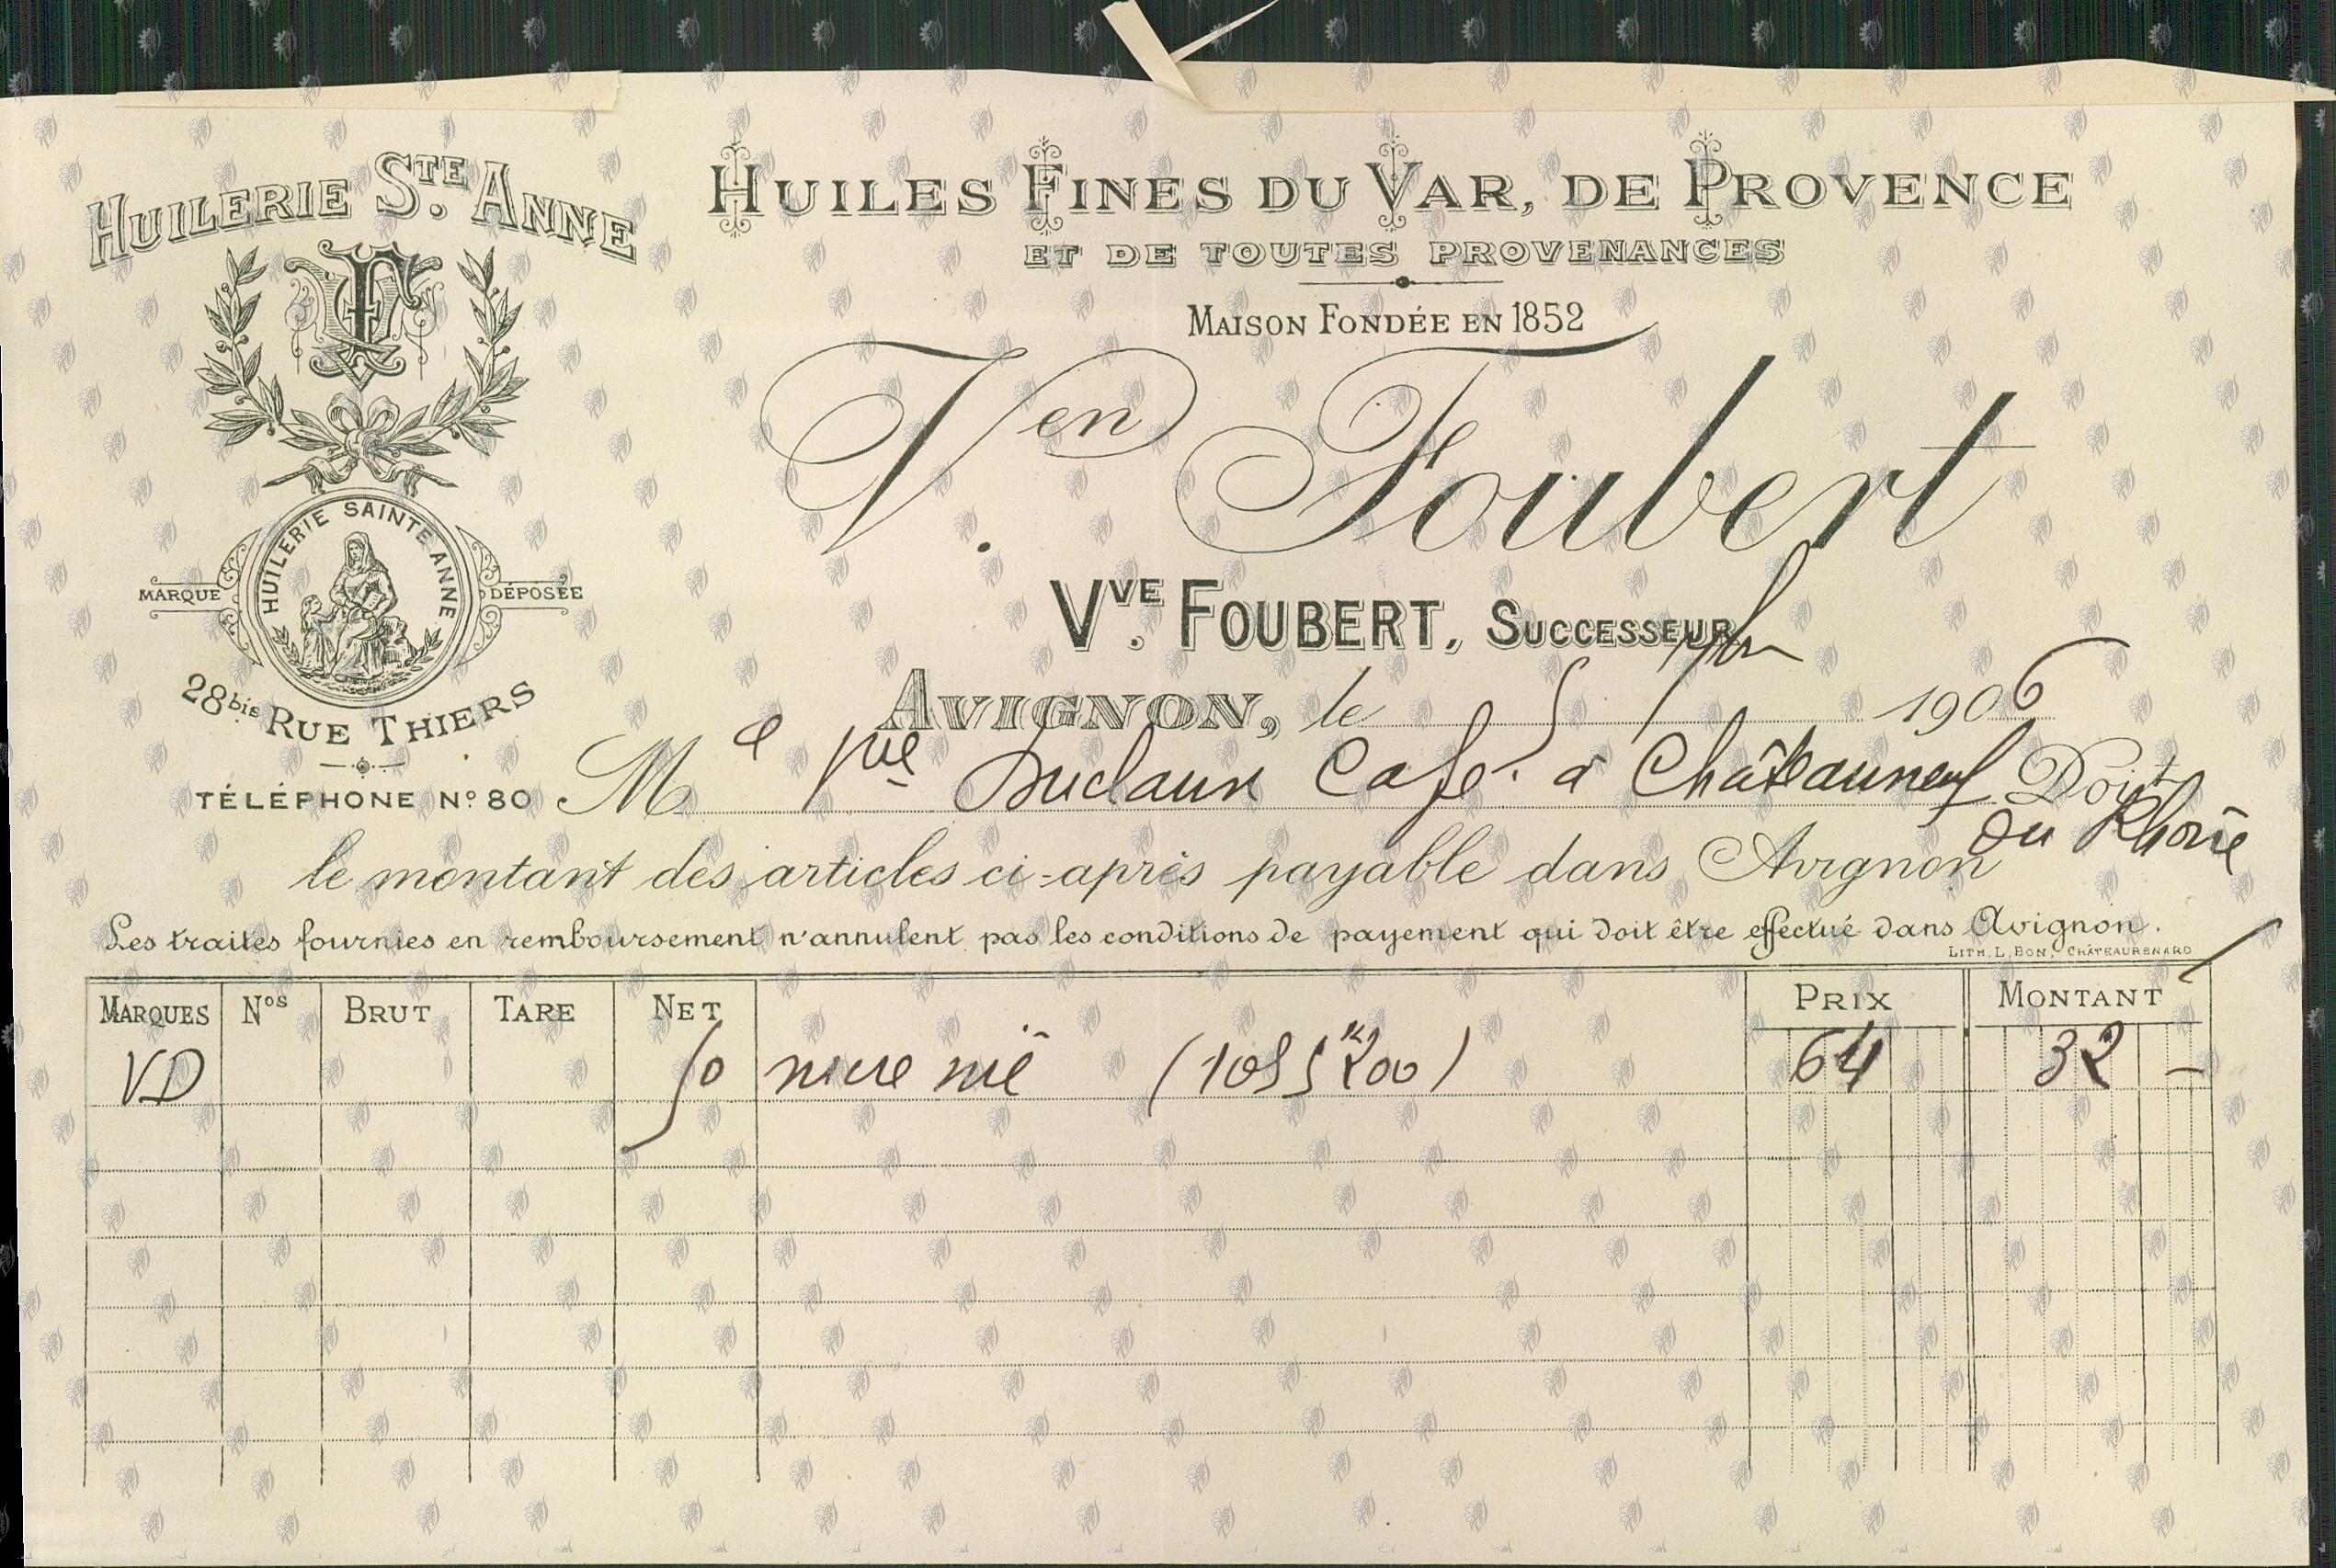 HUILERIE STE. ANNE
HUILES FINES DU VAR, DE PROVENCE
ET DE TOUTES PROVENANCES
MAISON FONDÉE EN 1852
VF
V.en Foubert
HUILERIE SAINTE ANNE
MARQUE DÉPOSÉE
VVE. FOUBERT, SUCCESSEUR
28bis RUE THIERS
AVIGNON, le 5 1906
TÉLÉPHONE No 80
Me Duclaux Café à Châteauneuf Doit
du Rhône
le montant des articles ci-après payable dans Avignon
Les traites fournies en remboursement n'annulent pas les conditions de payement qui doit être effectué dans Avignon.
LITH. L. BON, CHÂTEAURENARD
MARQUES Nos BRUT TARE NET PRIX MONTANT
VD 50 64 32 –